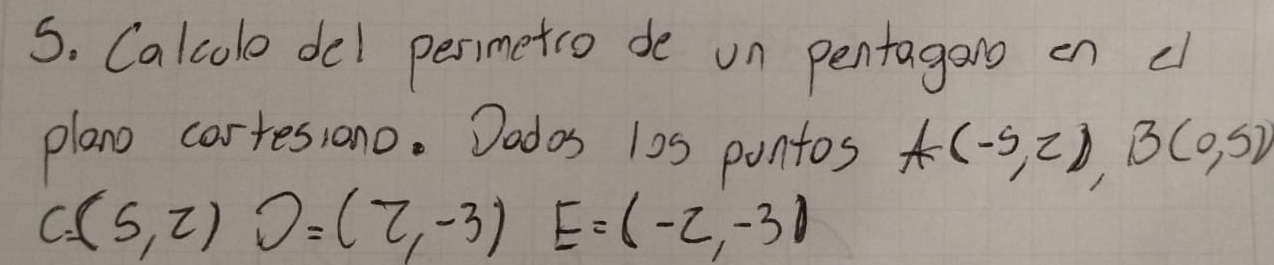 5. Calculo del perimetro de un pentagano en el
plano cartesiano. Dados los puntos A(-5,2), B(0,5)
C=(5,2) D=(2,-3) E=(-2,-3)